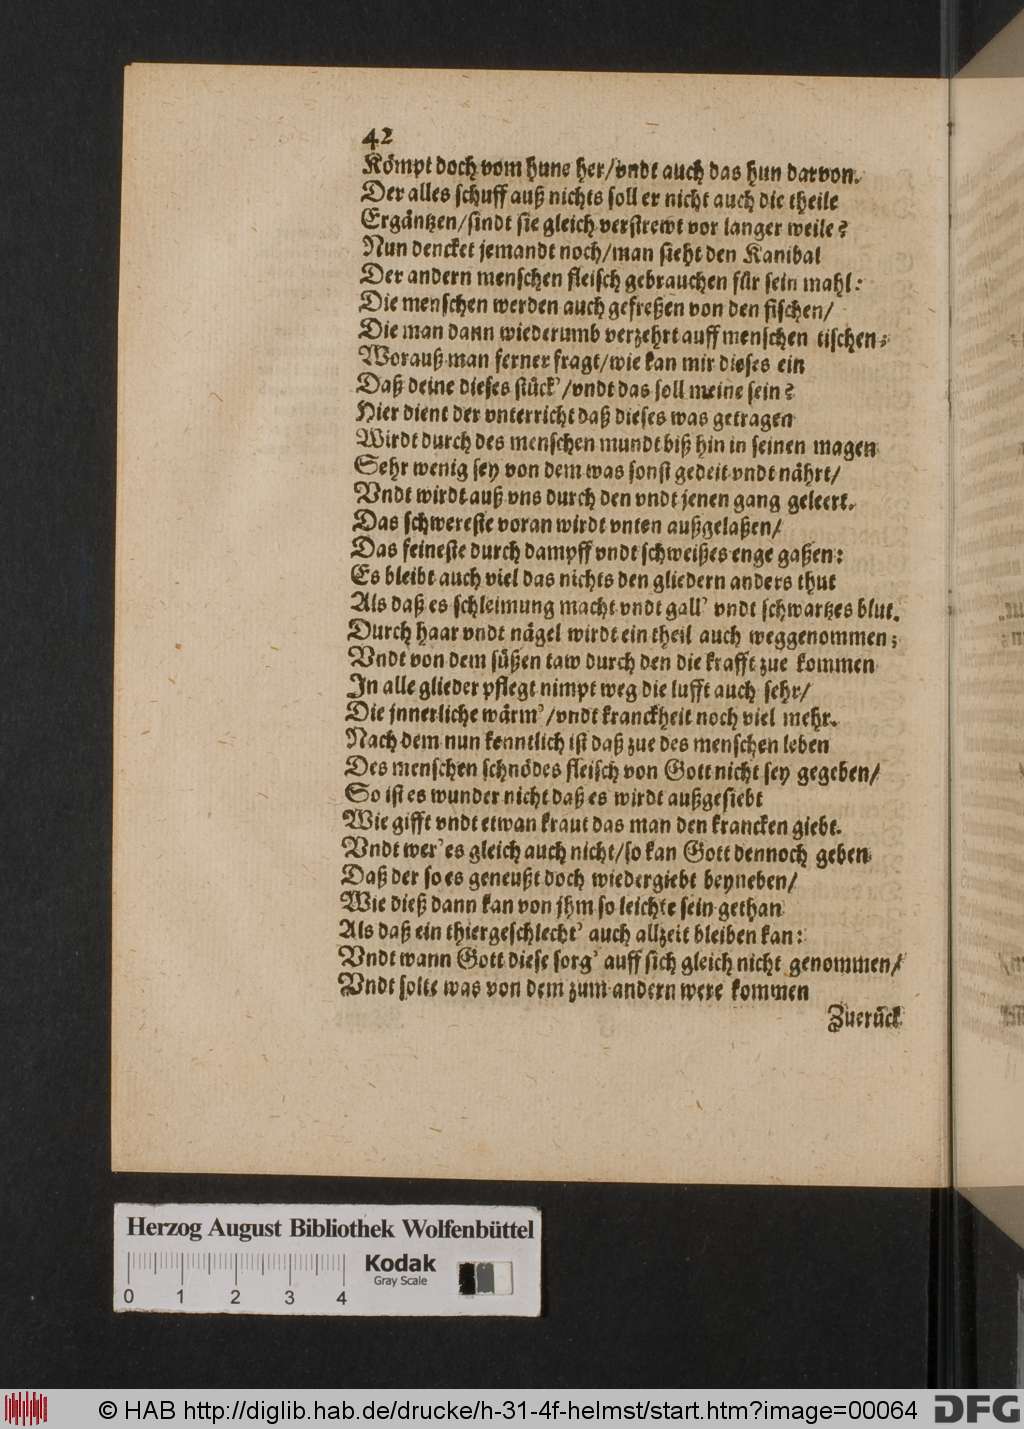 42
Kömpt doch vom hune her/vndt auch das hun darvon.
Der alles schuff auß nichts soll er nicht auch die theile
Ergäntzen/sindt sie gleich verstrewt vor langer weile?
Nun dencket jemandt noch/man sieht den Kanibal
Der andern menschen fleisch gebrauchen für sein mahl:
Die menschen werden auch gefreßen von den fischen/
Die man dann wiederumb verzehrt auff menschen tischen;
Worauß man ferner fragt/wie kan mir dieses ein
Daß deine dieses stück'/vndt das soll meine sein?
Hier dient der vnterricht daß dieses was getragen
Wirdt durch des menschen mundt biß hin in seinen magen
Sehr wenig sey von dem was sonst gedeit vndt nährt/
Vndt wirdt auß vns durch den vndt jenen gang geleert.
Das schwereste voran wirdt vnten außgelaßen/
Das feineste durch dampff vndt schweißes enge gaßen:
Es bleibt auch viel das nichts den gliedern anders thut
Als daß es schleimung macht vndt gall' vndt schwartzes blut.
Durch haar vndt nägel wirdt ein theil auch weggenommen;
Vndt von dem süßen taw durch den die krafft zue kommen
In alle glieder pflegt nimpt weg die lufft auch sehr/
Die jnnerliche wärm'/vndt kranckheit noch viel mehr.
Nach dem nun kenntlich ist daß zue des menschen leben
Des menschen schnödes fleisch von Gott nicht sey gegeben/
So ist es wunder nicht daß es wirdt außgesiebt
Wie gifft vndt etwan kraut das man den krancken giebt.
Vndt wer' es gleich auch nicht/so kan Gott dennoch geben
Daß der so es geneußt doch wiedergiebt beyneben/
Wie dieß dann kan von jhm so leichte sein gethan
Als daß ein thiergeschlecht' auch allzeit bleiben kan:
Vndt wann Gott diese sorg' auff sich gleich nicht genommen/
Vndt solte was von dem zum andern were kommen
Zuerück
Herzog August Bibliothek Wolfenbüttel
Kodak
Gray Scale
0 1 2 3 4
© HAB http://diglib.hab.de/drucke/h-31-4f-helmst/start.htm?image=00064
DFG